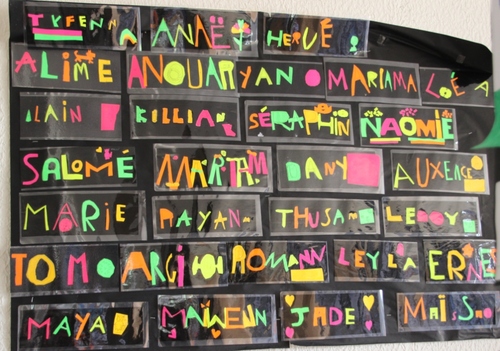 TYFENN ANAËY HERVÉ
ALIME ANOUAR YAN MARIAMA LOÉ A
ILAIN KILLIAN SÉRAPHIN NAOMIE
SALOMÉ MARIAM DANY AUXENCE
MARIE RAYAN THUSAN LEROY
TOM ROMANN LEYLA
MAYA MAÏWENN JADE